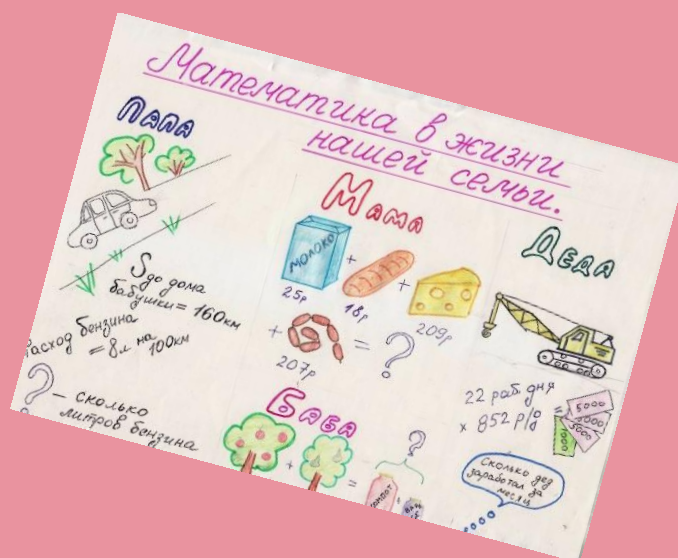 Математика в жизни
нашей семьи.
Папа
S до дома
бабушки = 160км
Расход бензина
= 8л на 100км
? – сколько
литров бензина
Мама
МОЛОКО
+
+
25р
18р
209р
+
= ?
207р
Деда
22 раб. дня
х 852 р/д
5000
5000
5000
Сколько дед
заработал за
месяц
Баба
?
+
=
КОМПОТ